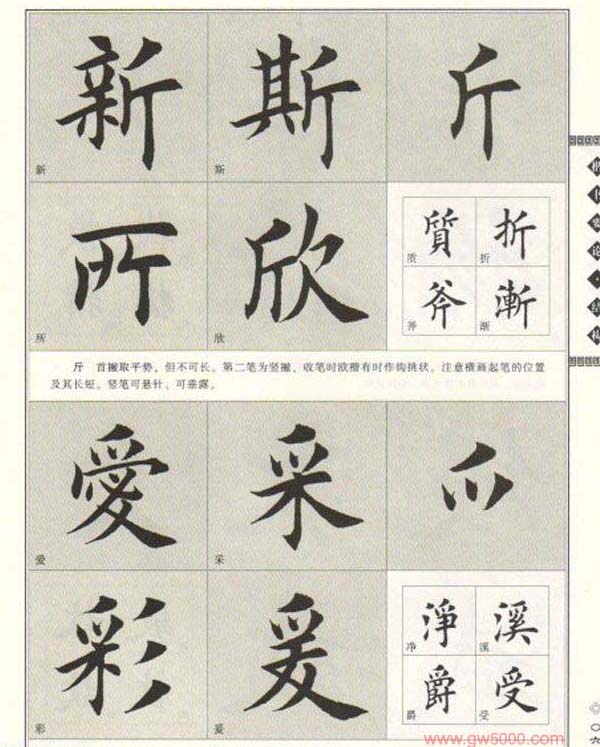 新 斯 斤
新 斯
所 欣
質 折
质 折
斧 漸
斧 渐
所 欣
斤 首撇取平势，但不可长。第二笔为竖撇，收笔时欧楷有时作钩挑状。注意横画起笔的位置
及其长短。竖笔可悬针、可垂露。
愛 采 爫
爱 采
彩 爰
淨 溪
净 溪
爵 受
爵 受
彩 爰
www.gw5000.com